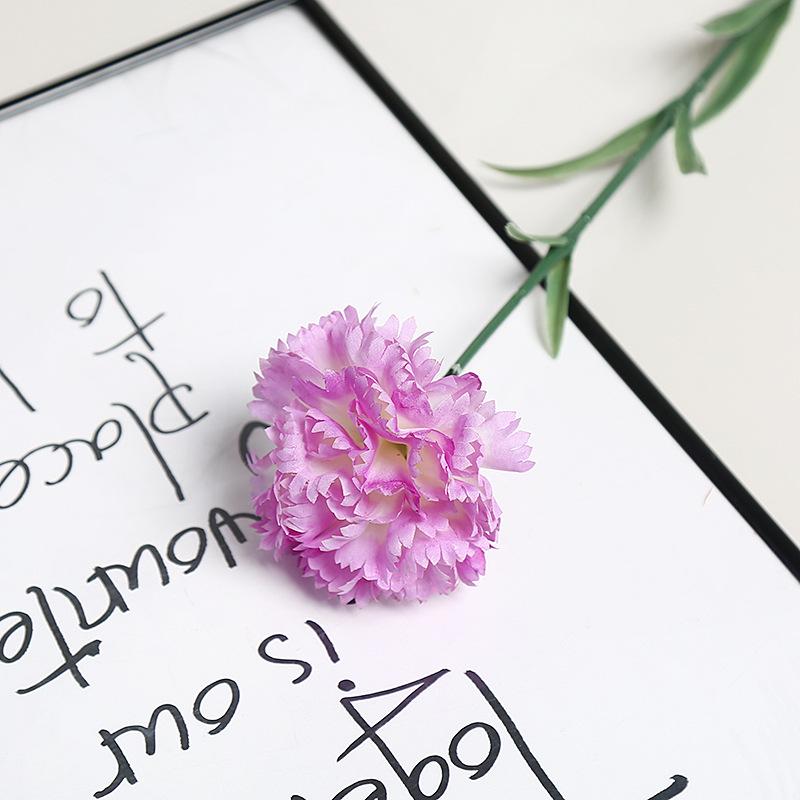 Toge
is our
vourite
place
to